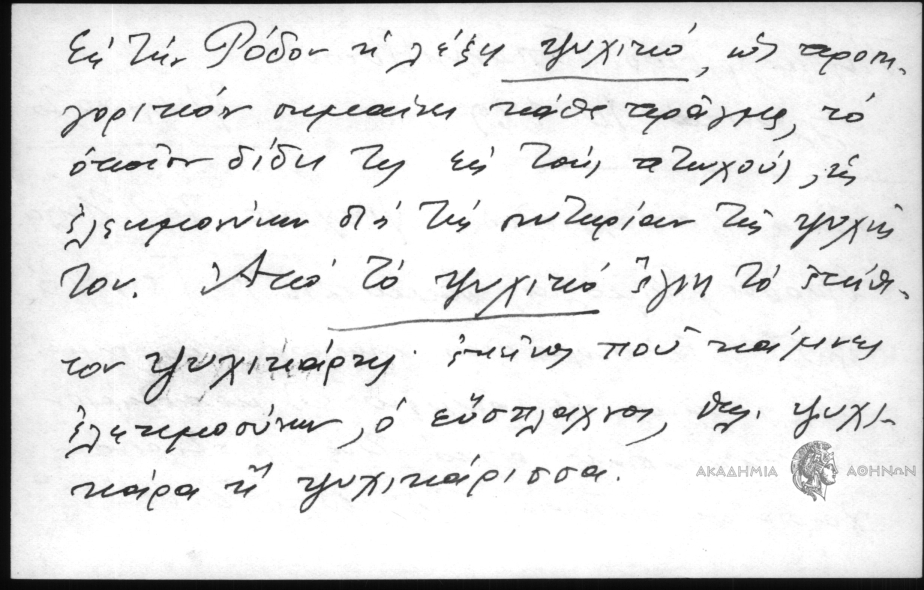 Εἰς τὴν Ῥόδον ἡ λέξη ψυχικό, ὡς προση-
γορικόν σημαίνει κάθε πρᾶγμα, τό
ὁποῖον δίδει τις εἰς τούς πτωχούς, ὡς
ἐλεημοσύνην διά τήν σωτηρίαν τῆς ψυχῆς
του. Ἀπό τό ψυχικό ἔχει τό ἐπίθε-
τον ψυχικάρης· ἐκεῖνος πού κάμνει
ἐλεημοσύνην, ὁ εὔσπλαχνος, θηλ. ψυχι-
κάρα ἤ ψυχικάρισσα.
ΑΚΑΔΗΜΙΑ ΑΘΗΝΩΝ